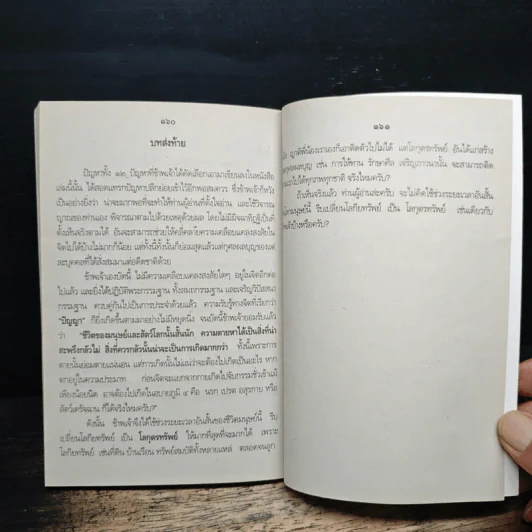 ๑๖๐
บทส่งท้าย
ปัญหาทั้ง ๑๒ ปัญหาที่ข้าพเจ้าได้คัดเลือกเอามาเขียนลงในหนังสือ
เล่มนี้นั้น ได้สอดแทรกปัญหาปลีกย่อยเข้าไว้อีกพอสมควร ซึ่งข้าพเจ้าก็หวัง
เป็นอย่างยิ่งว่า น่าจะมากพอที่จะทำให้ท่านผู้อ่านที่ตั้งใจอ่าน และใช้วิจารณ
ญาณของท่านเอง พิจารณาตามไปด้วยเหตุด้วยผล โดยไม่มีมิจฉาทิฏฐิเป็นที่
ตั้งเห็นจริงตามได้ อันจะสามารถช่วยให้คลี่คลายความเคลือบแคลงสงสัยใน
จิตไปได้บ้างไม่มากก็น้อย แต่ทั้งนี้ทั้งนั้นก็ย่อมสุดแล้วแต่กุศลผลบุญของแต่
ละบุคคลที่ได้สั่งสมมาแต่อดีตชาติด้วย
ข้าพเจ้าเองบัดนี้ ไม่มีความเคลือบแคลงสงสัยใดๆ อยู่ในจิตอีกต่อ
ไปแล้ว และยิ่งได้ปฏิบัติพระกรรมฐาน ทั้งสมถกรรมฐาน และเจริญวิปัสสนา
กรรมฐาน ควบคู่กันไปเป็นการประจำด้วยแล้ว ความรับรู้ทางจิตที่เรียกว่า
"ปัญญา" ก็ยิ่งเกิดขึ้นตามมาอย่างไม่หยุดนิ่ง จนบัดนี้ข้าพเจ้ายอมรับแล้ว
ว่า "ชีวิตของมนุษย์และสัตว์โลกนั้นสั้นนัก ความตายหาได้เป็นสิ่งที่น่า
สะพรึงกลัวไม่ สิ่งที่ควรกลัวนั้นน่าจะเป็นการเกิดมากกว่า ทั้งนี้เพราะการ
ตายนั้นย่อมตายแน่นอน แต่การเกิดนั้นไม่แน่ว่าจะต้องไปเกิดเป็นอะไร หาก
ตกอยู่ในความประมาท ก่อนจิตจะแยกจากกายเกิดไปจับกรรมชั่วเข้าแม้
เพียงน้อยนิด อาจต้องไปเกิดในอบายภูมิ ๔ คือ นรก เปรต อสุรกาย หรือ
สัตว์เดรัจฉาน ก็ได้จริงไหมครับ?"
ดังนั้น ข้าพเจ้าจึงได้ใช้ช่วงระยะเวลาอันสั้นของชีวิตมนุษย์นี้ รีบ
เปลี่ยนโลกียทรัพย์ เป็น โลกุตรทรัพย์ ให้มากที่สุดที่จะมากได้ เพราะ
โลกียทรัพย์ เช่นที่ดิน บ้านเรือน ทรัพย์สมบัติทั้งหลายแหล่ ตลอดจนลูก
๑๖๑
ญาติพี่น้องเราเองก็เอาติดตัวไปไม่ได้ แต่โลกุตรทรัพย์ อันได้แก่สร้าง
กุศลผลบุญ เช่น การให้ทาน รักษาศีล เจริญภาวนานั้น จะสามารถติด
ไปได้ทุกภพทุกชาติ จริงไหมครับ?
ถ้าเห็นจริงแล้ว ท่านผู้อ่านล่ะครับ จะไม่คิดใช้ช่วงระยะเวลาอันสั้น
มนุษย์นี้ รีบเปลี่ยนโลกียทรัพย์ เป็น โลกุตรทรัพย์ เช่นเดียวกับ
บ้างหรือครับ?